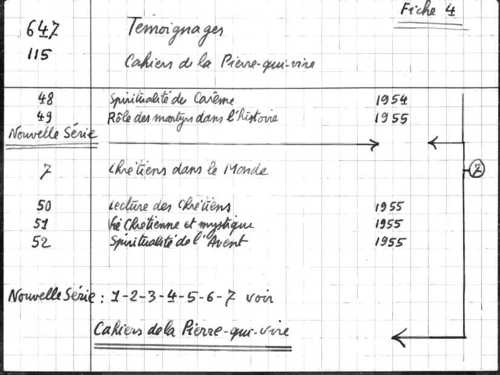 Fiche 4
647 Témoignages
115 Cahiers de la Pierre-qui-vire
48 Spiritualité du Carême 1954
49 Rôle des martyrs dans l'histoire 1955
Nouvelle Série
7 Chrétiens dans le Monde
7
50 Lecture des Chrétiens 1955
51 Vie Chrétienne et mystique 1955
52 Spiritualité de l'Avent 1955
Nouvelle Série : 1-2-3-4-5-6-7 voir
Cahiers de la Pierre-qui-vire